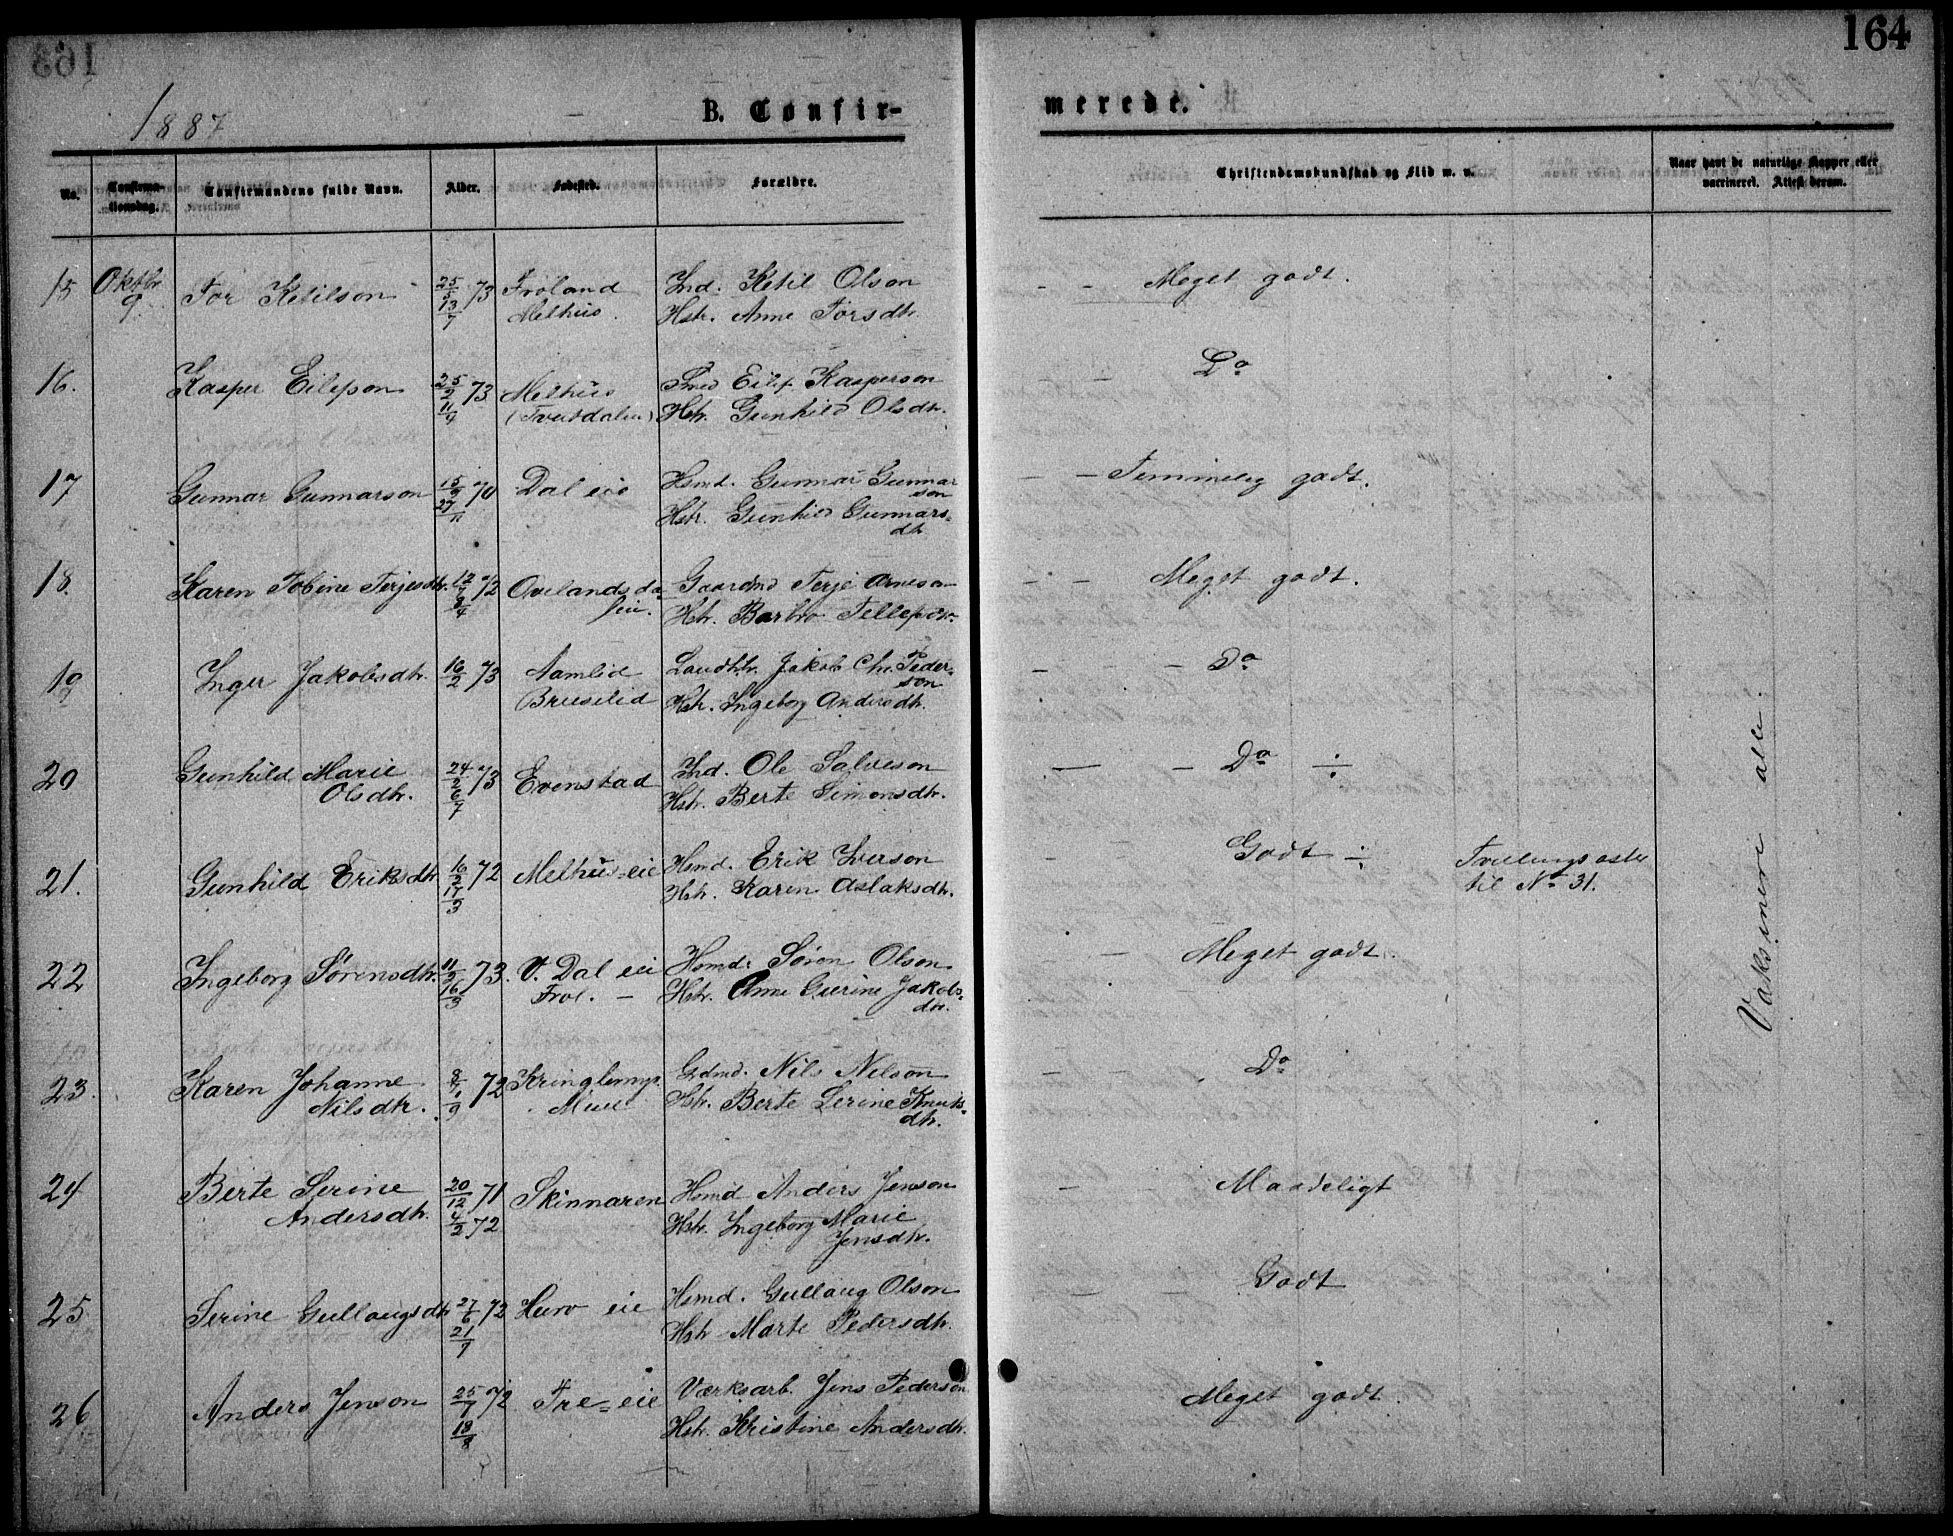 163
164
1887
B. Confir-
merede.
No.
Confirma-
tionsdag.
Confirmandens fulde Navn.
Alder.
Fødested.
Forældre.
Christendomskundskab og Flid m. v.
Naar havt de naturlige Kopper eller
vaccineret. Attest derom.
15 Oktbr 9. Tor Ketilson 25/5 73 13/7 Froland Melhus. Ind. Ketil Olson
Hstr. Anne Torsdtr.
- - Meget godt.
16. Kasper Eilefson 25/2 73 11/4 Melhus (Tveitdalen) Smed Eilef Kasperson
Hstr. Gunhild Olsdtr.
- Do
17 Gunnar Gunnarson 15/9 70 27/11 Dal eie Hsmd. Gunnar Gunnar
son
Hstr. Gunhild Gunnars-
dtr
- - Temmelig godt.
18. Karen Tobine Terjesdtr. 12/2 72 Ovelandsda-
len. Gaardmd Terje Arneson
Hstr. Barbro Tellefsdtr.
- - Meget godt.
19 Inger Jakobsdtr. 16/2 73 Aamlid
Bruselid Landhdr. Jakob Chr. Peder-
son
Hstr. Ingeborg Andersdtr.
- - - Do
20 Gunhild Marie
Olsdtr. 24/2 73 Evenstad Ind. Ole Salveson
Hstr. Berte Simonsdtr.
- - Do ÷
21. Gunhild Eriksdtr 16/2 72 17/3 Melhus-eie Hsmd. Erik Iverson
Hstr. Karen Aslaksdtr.
- Godt ÷ Tvillingsøster
til No 31.
22 Ingeborg Sørensdtr. 11/2 73. 16/3 V. Dal eie
Frol. - Hsmd. Søren Olson
Hstr. Anne Gurine Jakobs-
dtr.
- Meget godt.
23. Karen Johanne
Nilsdtr. 8/7 72 1/9 Gdmd. Nils Nilson
Hstr. Berte Serine Knuts-
dtr.
- Do
24 Berte Serine
Andersdtr. 20/12 71 4/2 72 Skinnaren Hsmd Anders Jenson
Hstr. Ingeborg Marie
Jensdtr.
- Maadeligt
25 Serine Gullaugsdtr 27/6 72 21/7 Huro eie Hsmd. Gullaug Olson
Hstr Marte Pedersdtr.
- - Godt
26 Anders Jenson 25/7 72 18/8 Tre-eie Værksarb. Jens Pederson
Hstr. Kristine Andersdtr.
Meget godt.
Vaksinere alle.